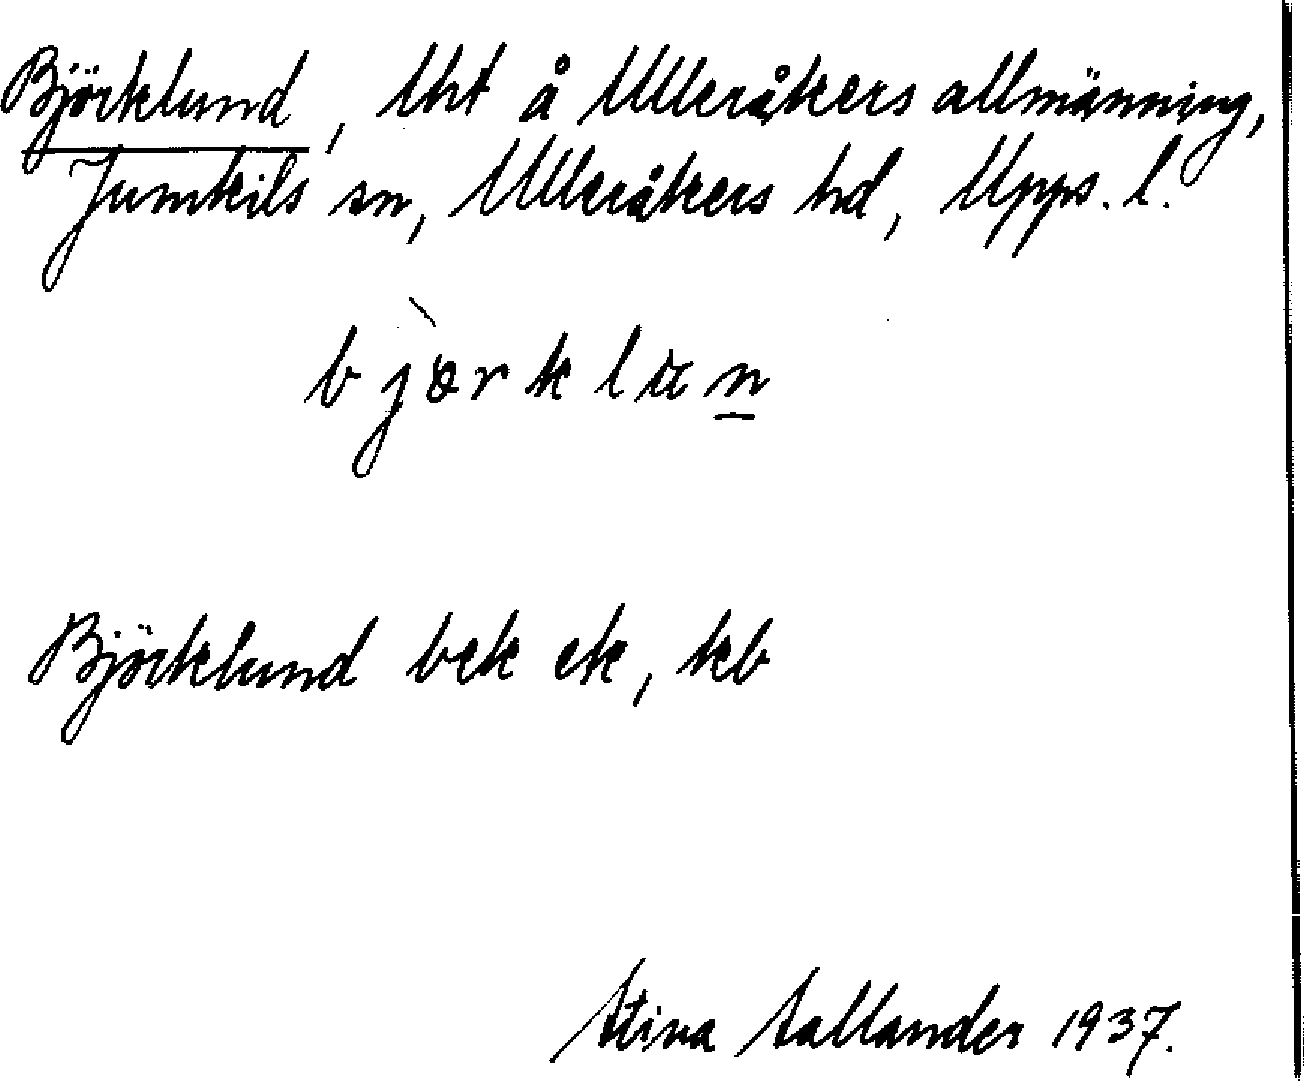 Björklund, Uht å Ulleråkers allmänning,
Jumkils sn, Ulleråkers hd, Upps. l.
bjòrklun
Björklund bek ek, kb
Stina Sallander 1937.